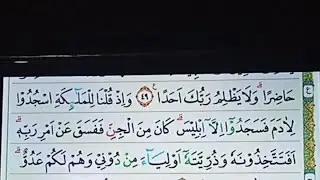 حَاضِرًا ۗ وَلَا يَظْلِمُ رَبُّكَ اَحَدًا ﴿٤٩﴾ وَاِذْ قُلْنَا لِلْمَلٰٓئِكَةِ اسْجُدُوْا
لِاٰدَمَ فَسَجَدُوْٓا اِلَّآ اِبْلِيْسَ ۗ كَانَ مِنَ الْجِنِّ فَفَسَقَ عَنْ اَمْرِ رَبِّهٖ ۗ
اَفَتَتَّخِذُوْنَهٗ وَذُرِّيَّتَهٗٓ اَوْلِيَآءَ مِنْ دُوْنِيْ وَهُمْ لَكُمْ عَدُوٌّ ۗ